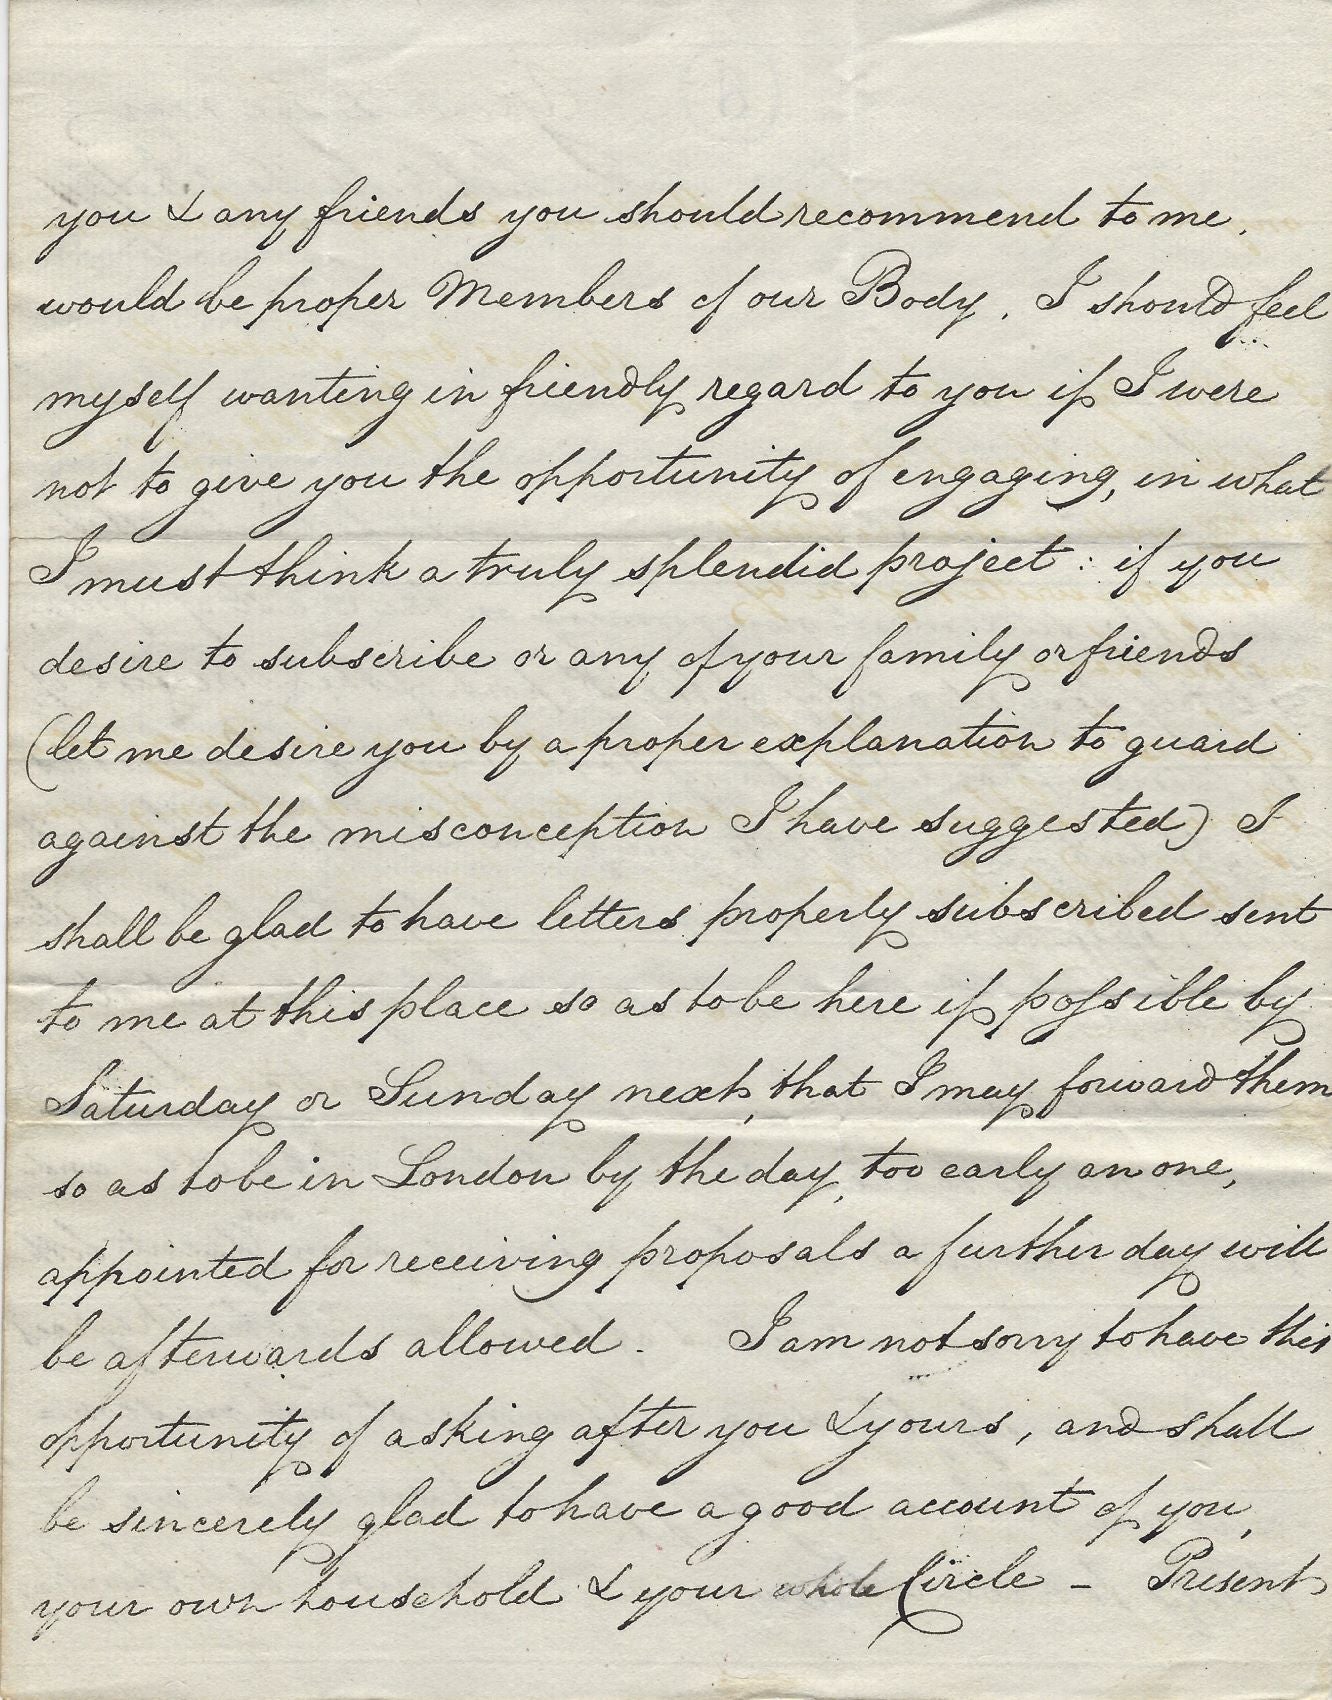 you & any friends you should recommend to me,
would be proper Members of our Body. I should feel
myself wanting in friendly regard to you if I were
not to give you the opportunity of engaging, in what
I must think a truly splendid project : if you
desire to subscribe or any of your family or friends
(let me desire you by a proper explanation to guard
against the misconception I have suggested) I
shall be glad to have letters properly subscribed sent
to me at this place so as to be here if poſsible by
Saturday or Sunday next, that I may forward them
so as to be in London by the day, too early an one,
appointed for receiving proposals a further day will
be afterwards allowed. I am not sorry to have this
opportunity of asking after you & yours, and shall
be sincerely glad to have a good account of you,
your own household & your whole Circle - Present